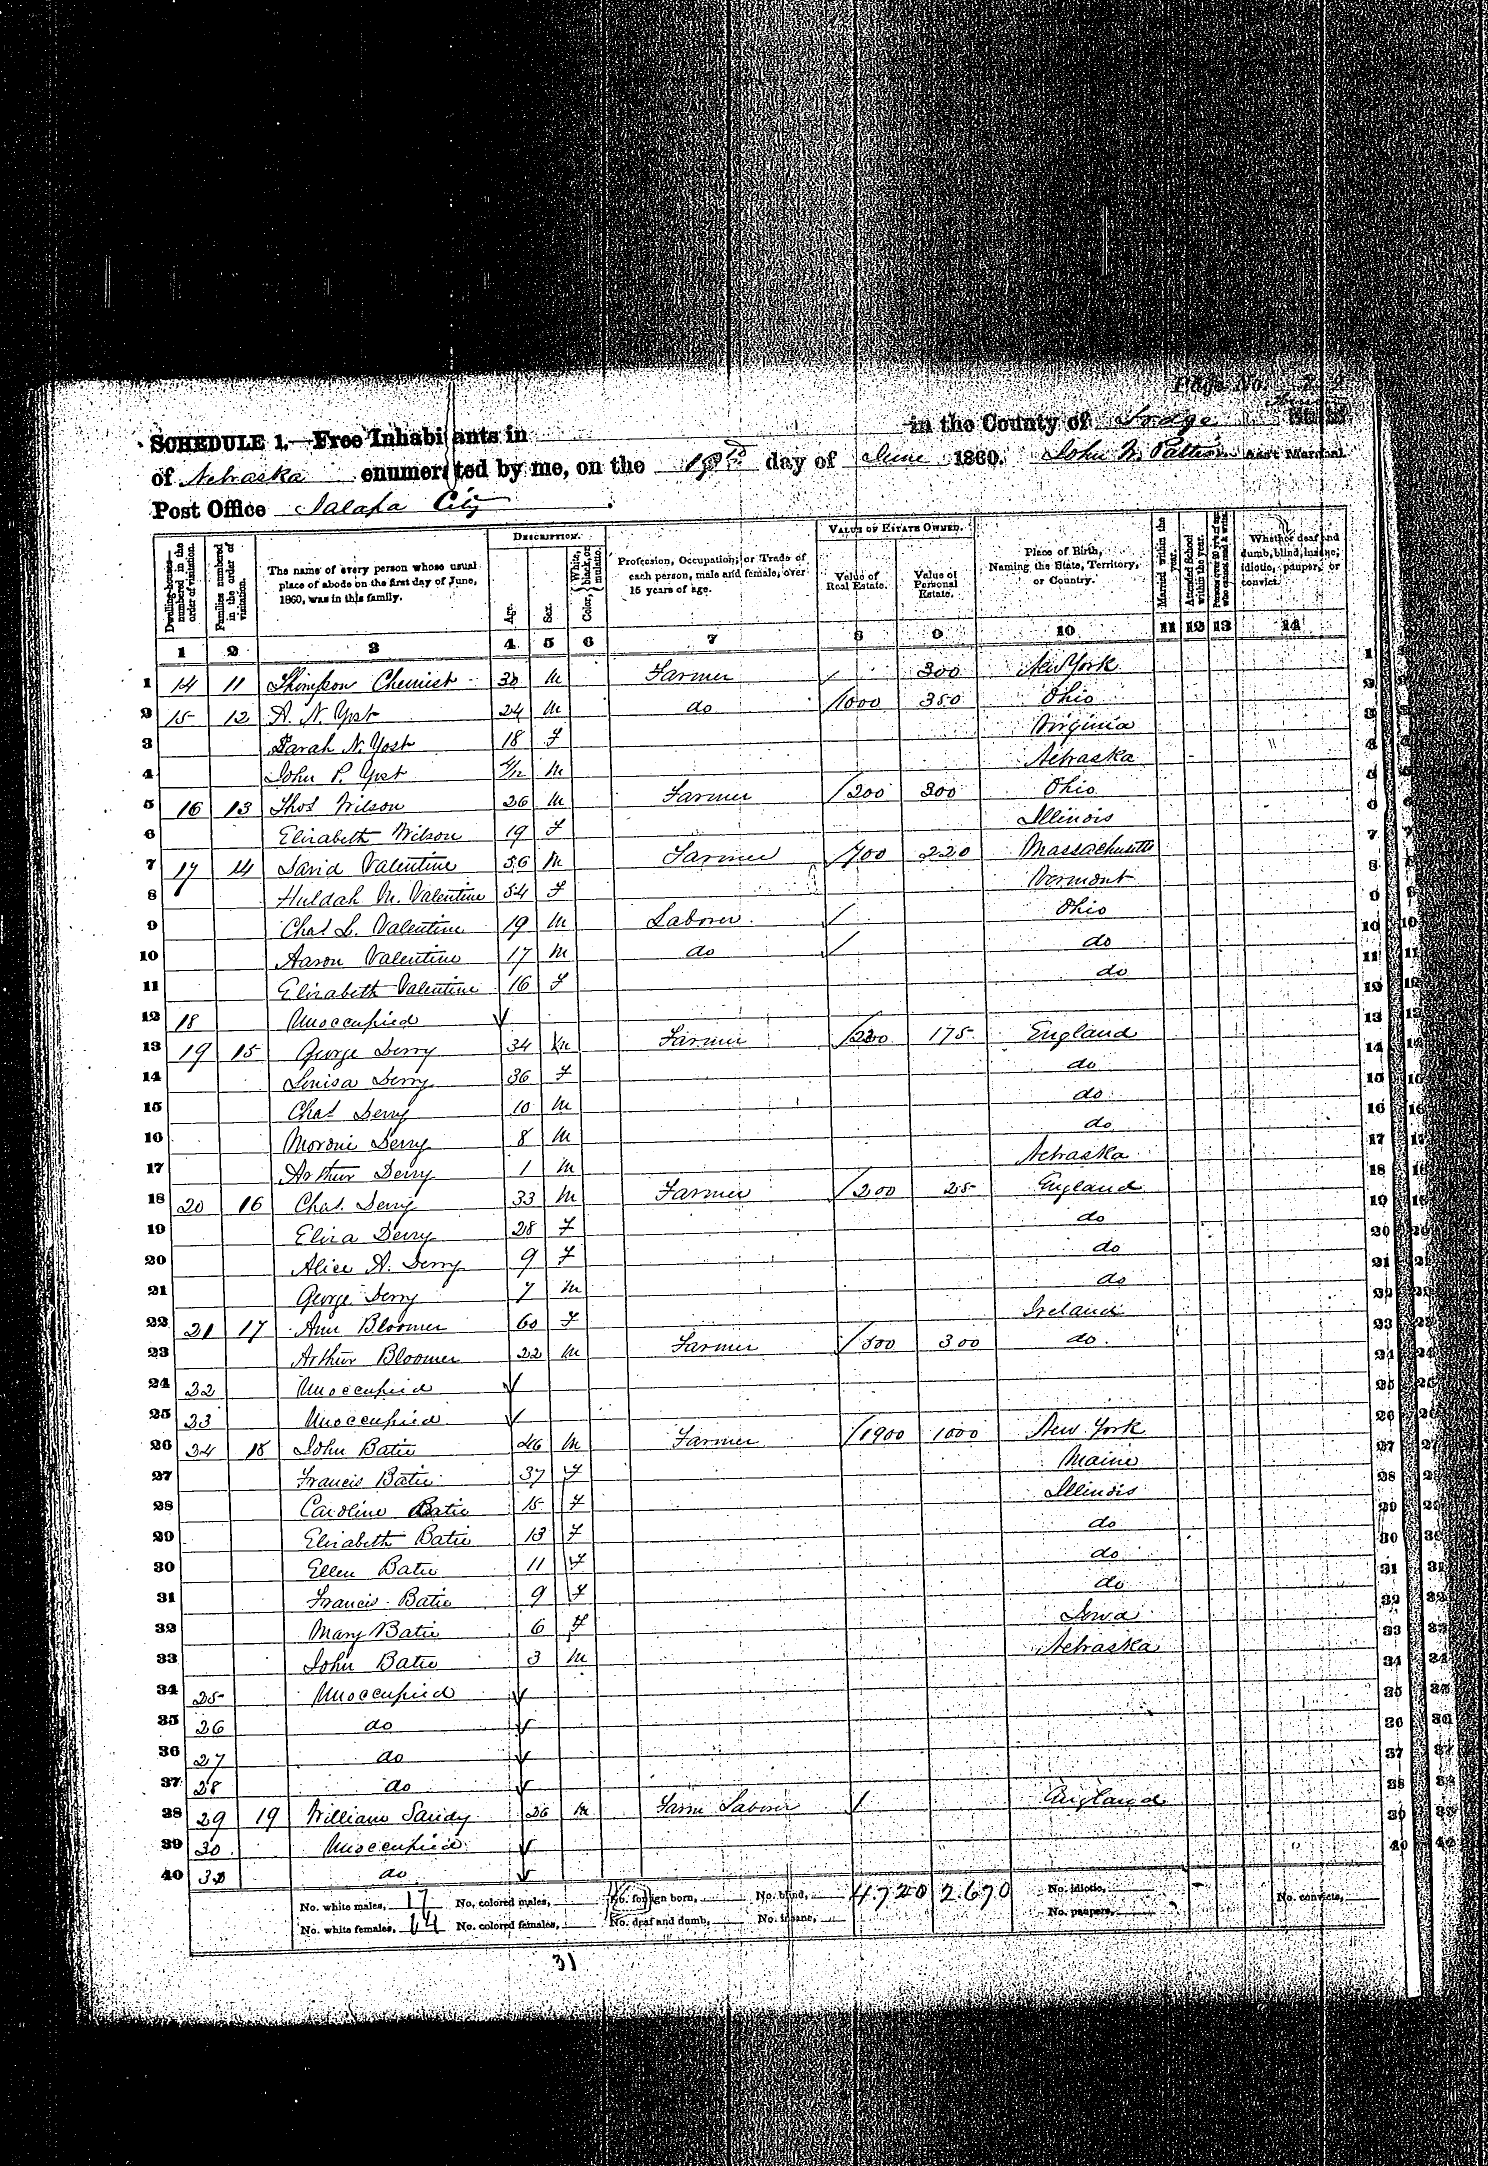 Page No.
SCHEDULE 1.—Free Inhabitants in in the County of Dodge
of Nebraska enumerated by me, on the 19th day of June 1860. John W. Patti Ass't Marshal
Post Office Jalapa City
DESCRIPTION. VALUE OF ESTATE OWNED.
Dwelling-houses—numbered in the order of visitation. Families numbered in the order of visitation. The name of every person whose usual place of abode on the first day of June, 1860, was in this family. Age. Sex. Color, White, black, or mulatto. Profession, Occupation, or Trade of each person, male and female, over 15 years of age. Value of Real Estate. Value of Personal Estate. Place of Birth, Naming the State, Territory, or Country. Married within the year. Attended School within the year. Persons over 20 y'rs of age who cannot read & write. Whether deaf and dumb, blind, insane, idiotic, pauper, or convict.
1 2 3 4 5 6 7 8 9 10 11 12 13 14
1 14 11 Thompson 30 M Farmer 300 New York 1
2 15 12 A. N. Yost 24 M do 1000 350 Ohio 2
3 Sarah N. Yost 18 F Virginia 3
4 John P. Yost /12 M Nebraska 4
5 16 13 Thos Wilson 26 M Farmer 200 300 Ohio 5
6 Elizabeth Wilson 19 F Illinois 6
7 17 14 David Valentine 56 M Farmer 700 220 Massachusetts 7
8 Huldah M. Valentine 54 F Vermont 8
9 Chas L. Valentine 19 M Laborer Ohio 9
10 Aaron Valentine 17 M do do 10
11 Elizabeth Valentine 16 F do 11
12 18 Unoccupied 12
13 19 15 George Derry 34 M Farmer 220 175 England 13
14 Louisa Derry 36 F do 14
15 Chas Derry 10 M do 15
16 Moroni Derry 8 M do 16
17 Arthur Derry 1 M Nebraska 17
18 20 16 Chas. Derry 33 M Farmer 200 25 England 18
19 Eliza Derry 28 F do 19
20 Alice A. Derry 9 F do 20
21 George Derry 7 M do 21
22 21 17 Ann Bloomer 60 F Ireland 22
23 Arthur Bloomer 22 M Farmer 500 300 do 23
24 22 Unoccupied 24
25 23 Unoccupied 25
26 24 18 John Batie 46 M Farmer 1900 1000 New York 26
27 Francis Batie 37 F Maine 27
28 Caroline Batie 15 F Illinois 28
29 Elizabeth Batie 13 F do 29
30 Ellen Batie 11 F do 30
31 Francis Batie 9 F do 31
32 Mary Batie 6 F Iowa 32
33 John Batie 3 M Nebraska 33
34 25 Unoccupied 34
35 26 do 35
36 27 do 36
37 28 do 37
38 29 19 William Sandy 26 M Farm Laborer England 38
39 30 Unoccupied 39
40 do 40
No. white males, 17 No. colored males, No. foreign born, No. blind, 4.720 2.670 No. idiotic, No. convicts,
No. white females, 14 No. colored females, No. deaf and dumb, No. insane, No. paupers,
31